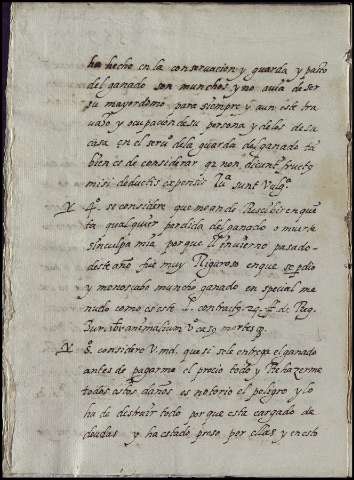 ha hecho en la conservacion y guarda y pasto
del ganado son munchos y no avia de ser
su mayordomo para siempre y aun este tra
vaxo y ocupacion de su persona y de los de su
casa en el serui° de la guarda del ganado ta
bien es de considerar q2 non dicunt fructo
nisi deductis expensis
y 4° se considere que me an de Rescibir en que
ta qualquier perdida del ganado o muerte
sin culpa mia porque el invierno pasado
deste año fue muy Riguroso en que se pdio
y menoscabo muncho ganado en special me
nudo como es este contractg 24 ff de Reg
Jur animalium v caso mortesq
y 5. considere V. md. que si se le entrega el ganado
antes de pagarme el precio todo y Rehazerme
todos estos daños es notorio el peligro y lo
ha de destruir todo por que esta cargado de
deudas y ha estado preso por ellas y en esto